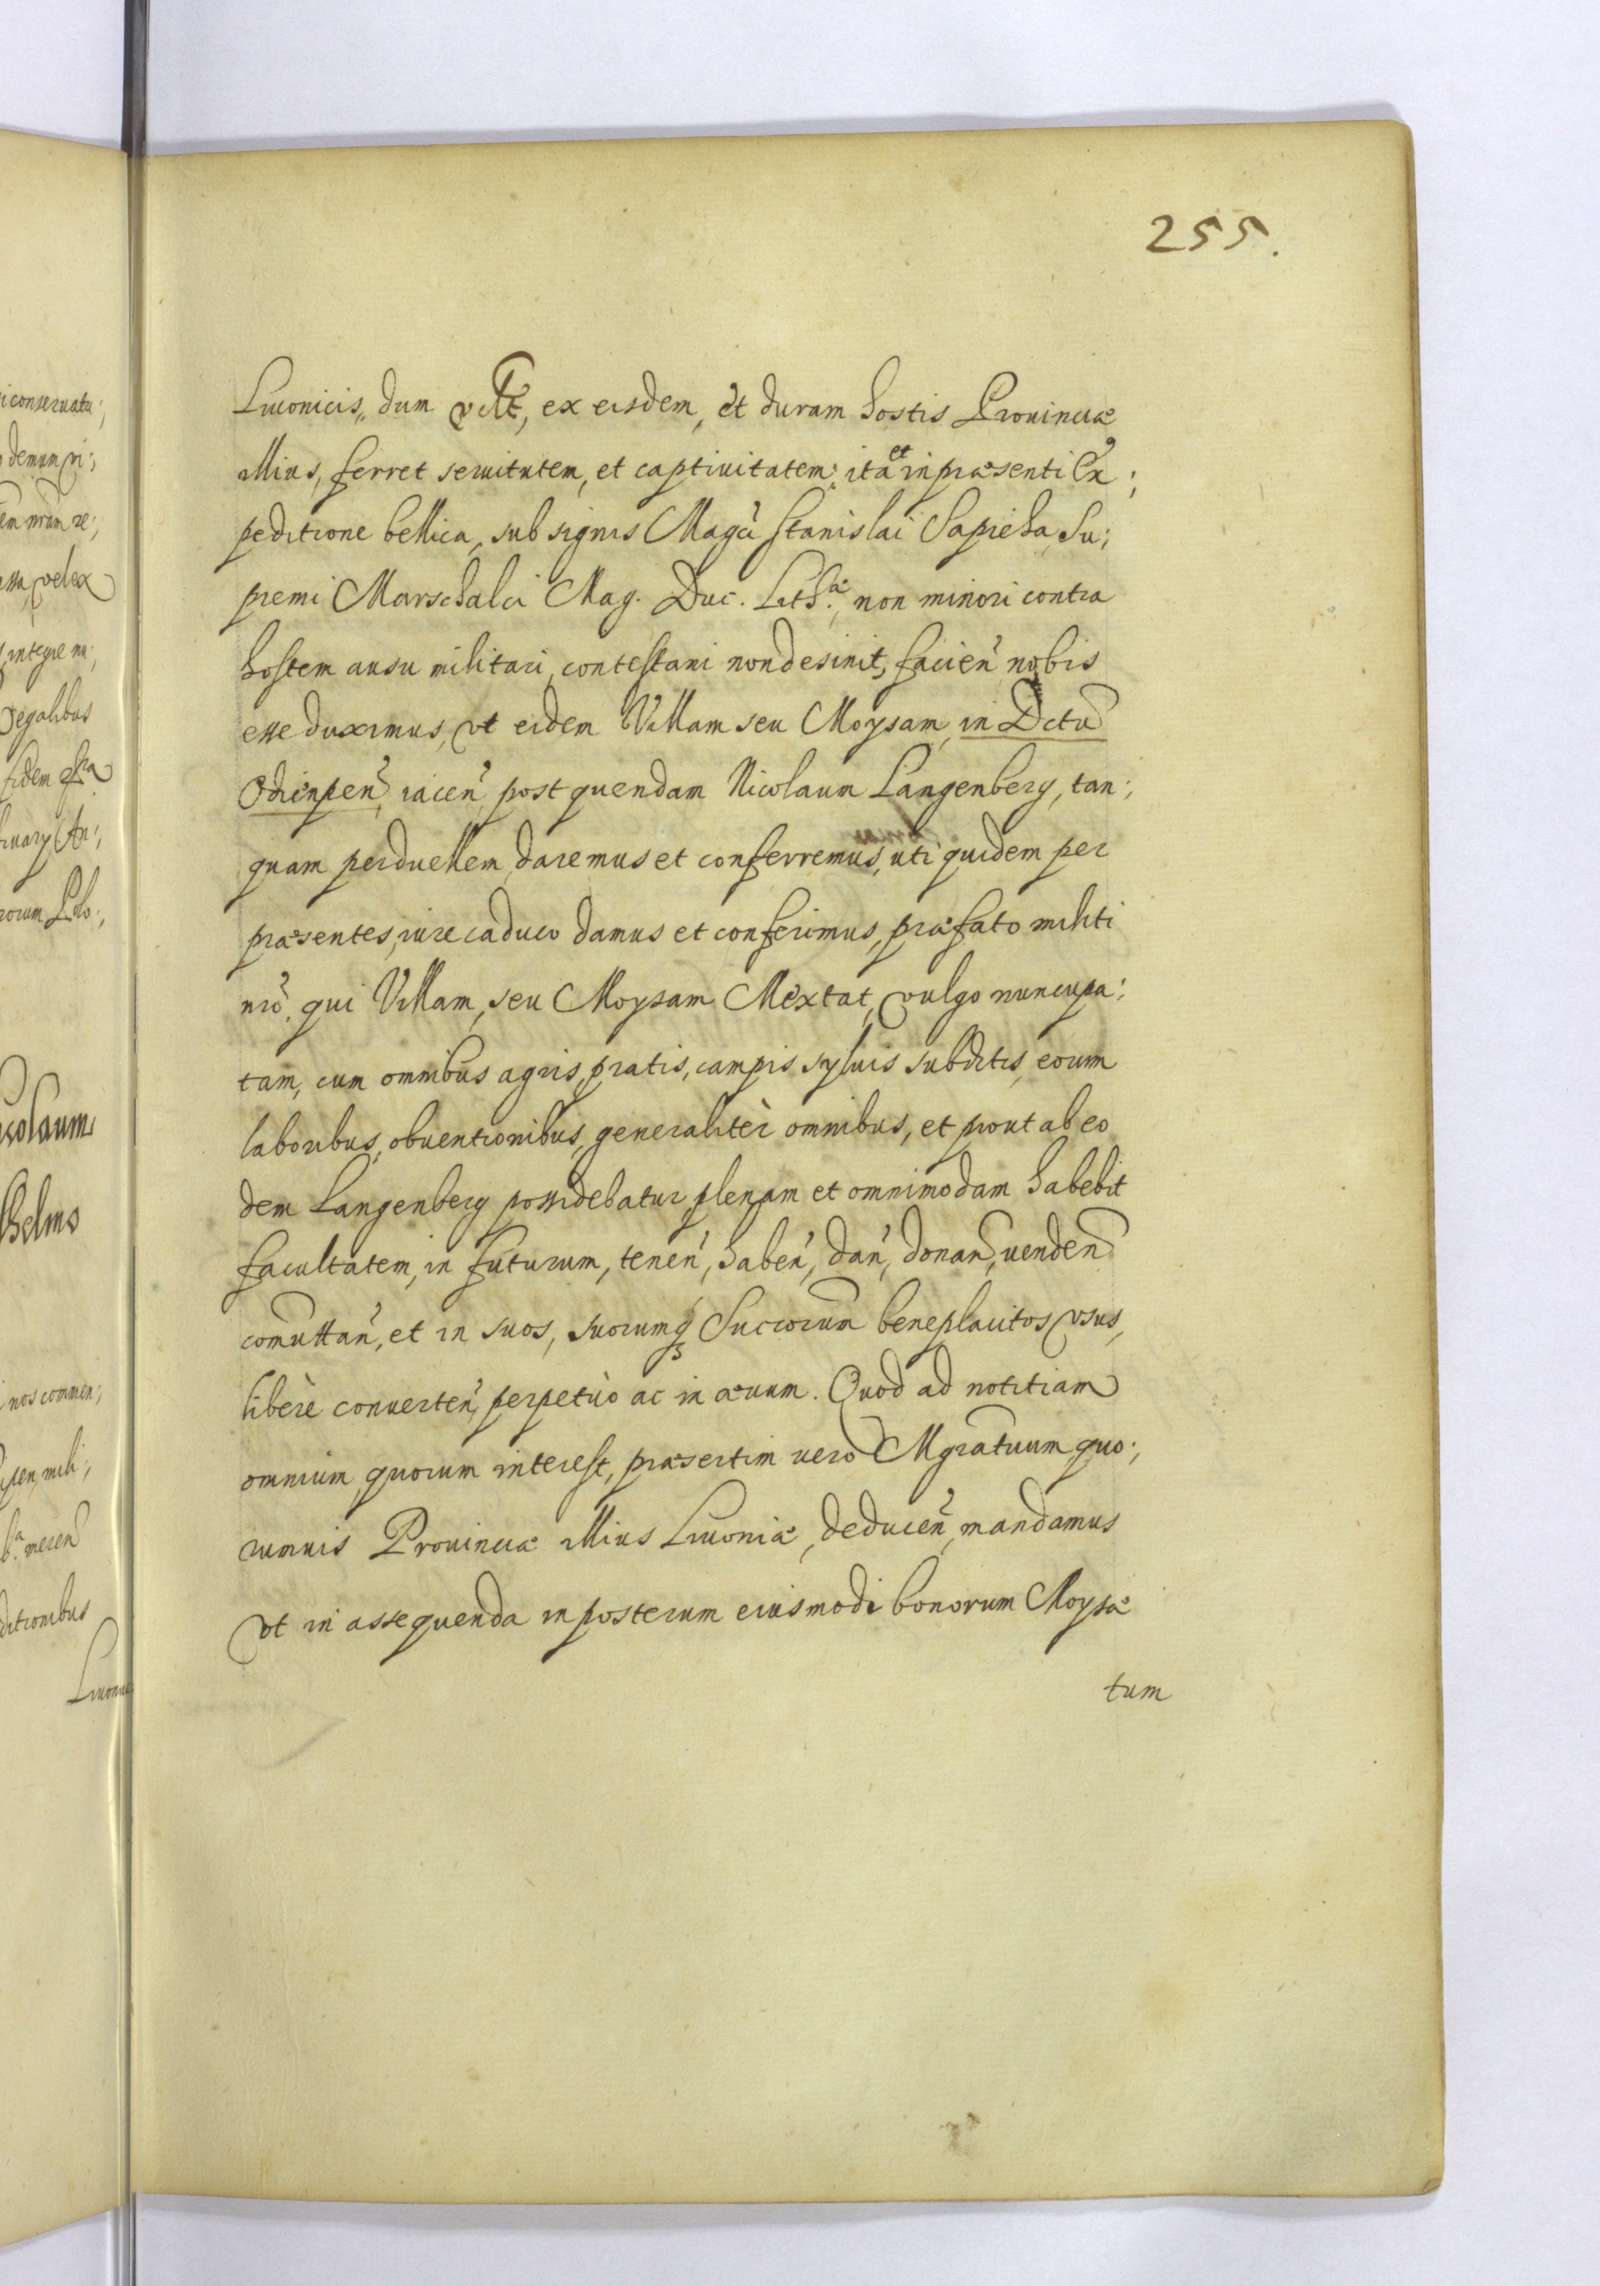 255.
Liuonicis, dum ex eisdem, et duram hostis Prouinciæ
illius, ferret seruitutem, et captiuitatem: ita et in præsenti Ex:
peditione bellica, sub signis Magci Stanislai Sapieha, Su:
premi Marschalci Mag. Duc. Lith.æ, non minori contra
hostem ausu militari, contestari non desinit, facien nobis
esse duximus, vt eidem Villam seu Moysam, in Dctu
Odienpen, iacen, post quendam Nicolaum Langenberg, tan:
quam perduellem, daremus et conferremus, uti quidem per
præsentes, iure caduco damus et conferimus, præfato militi
nro. qui Villam, seu Moysam Mextat, vulgo nuncupa:
tam, cum omnibus agris, pratis, campis syluis subditis, eorum
laboribus, obuentionibus, generalitèr omnibus, et prout ab eo
dem Langenberg possidebatur, plenam et omnimodam habebit
facultatem, in futurum, tenen, haben, dan, donan, venden
comuttan, et in suos, suorumq Succorum beneplacitos vsus,
liberè conuerten, perpetùo ac in æuum. Quod ad notitiam
omnium, quorum interest, præsertim vero Mgratuum quo:
rumuis Prouinciæ illius Liuoniæ, deducen, mandamus
vt in assequenda in posterum eiusmodi bonorum Moysæ
tum
i conseruatu:
demum vi:
em nrum re:
velex
integre nu:
egalibus
fidem
An:
rorum Polo:
icolaum
helmo
nos commen:
mili:
meren
ditionibus
Liuonic